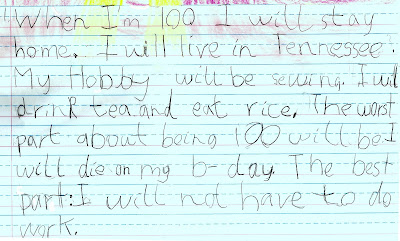 When Im 100 I will stay
home. I will live in Tennessee.
My Hobby will be sewing. I will
drink tea and eat rice. The worst
part about being 100 will be I
will die on my b-day. The best
part: I will not have to do
work.